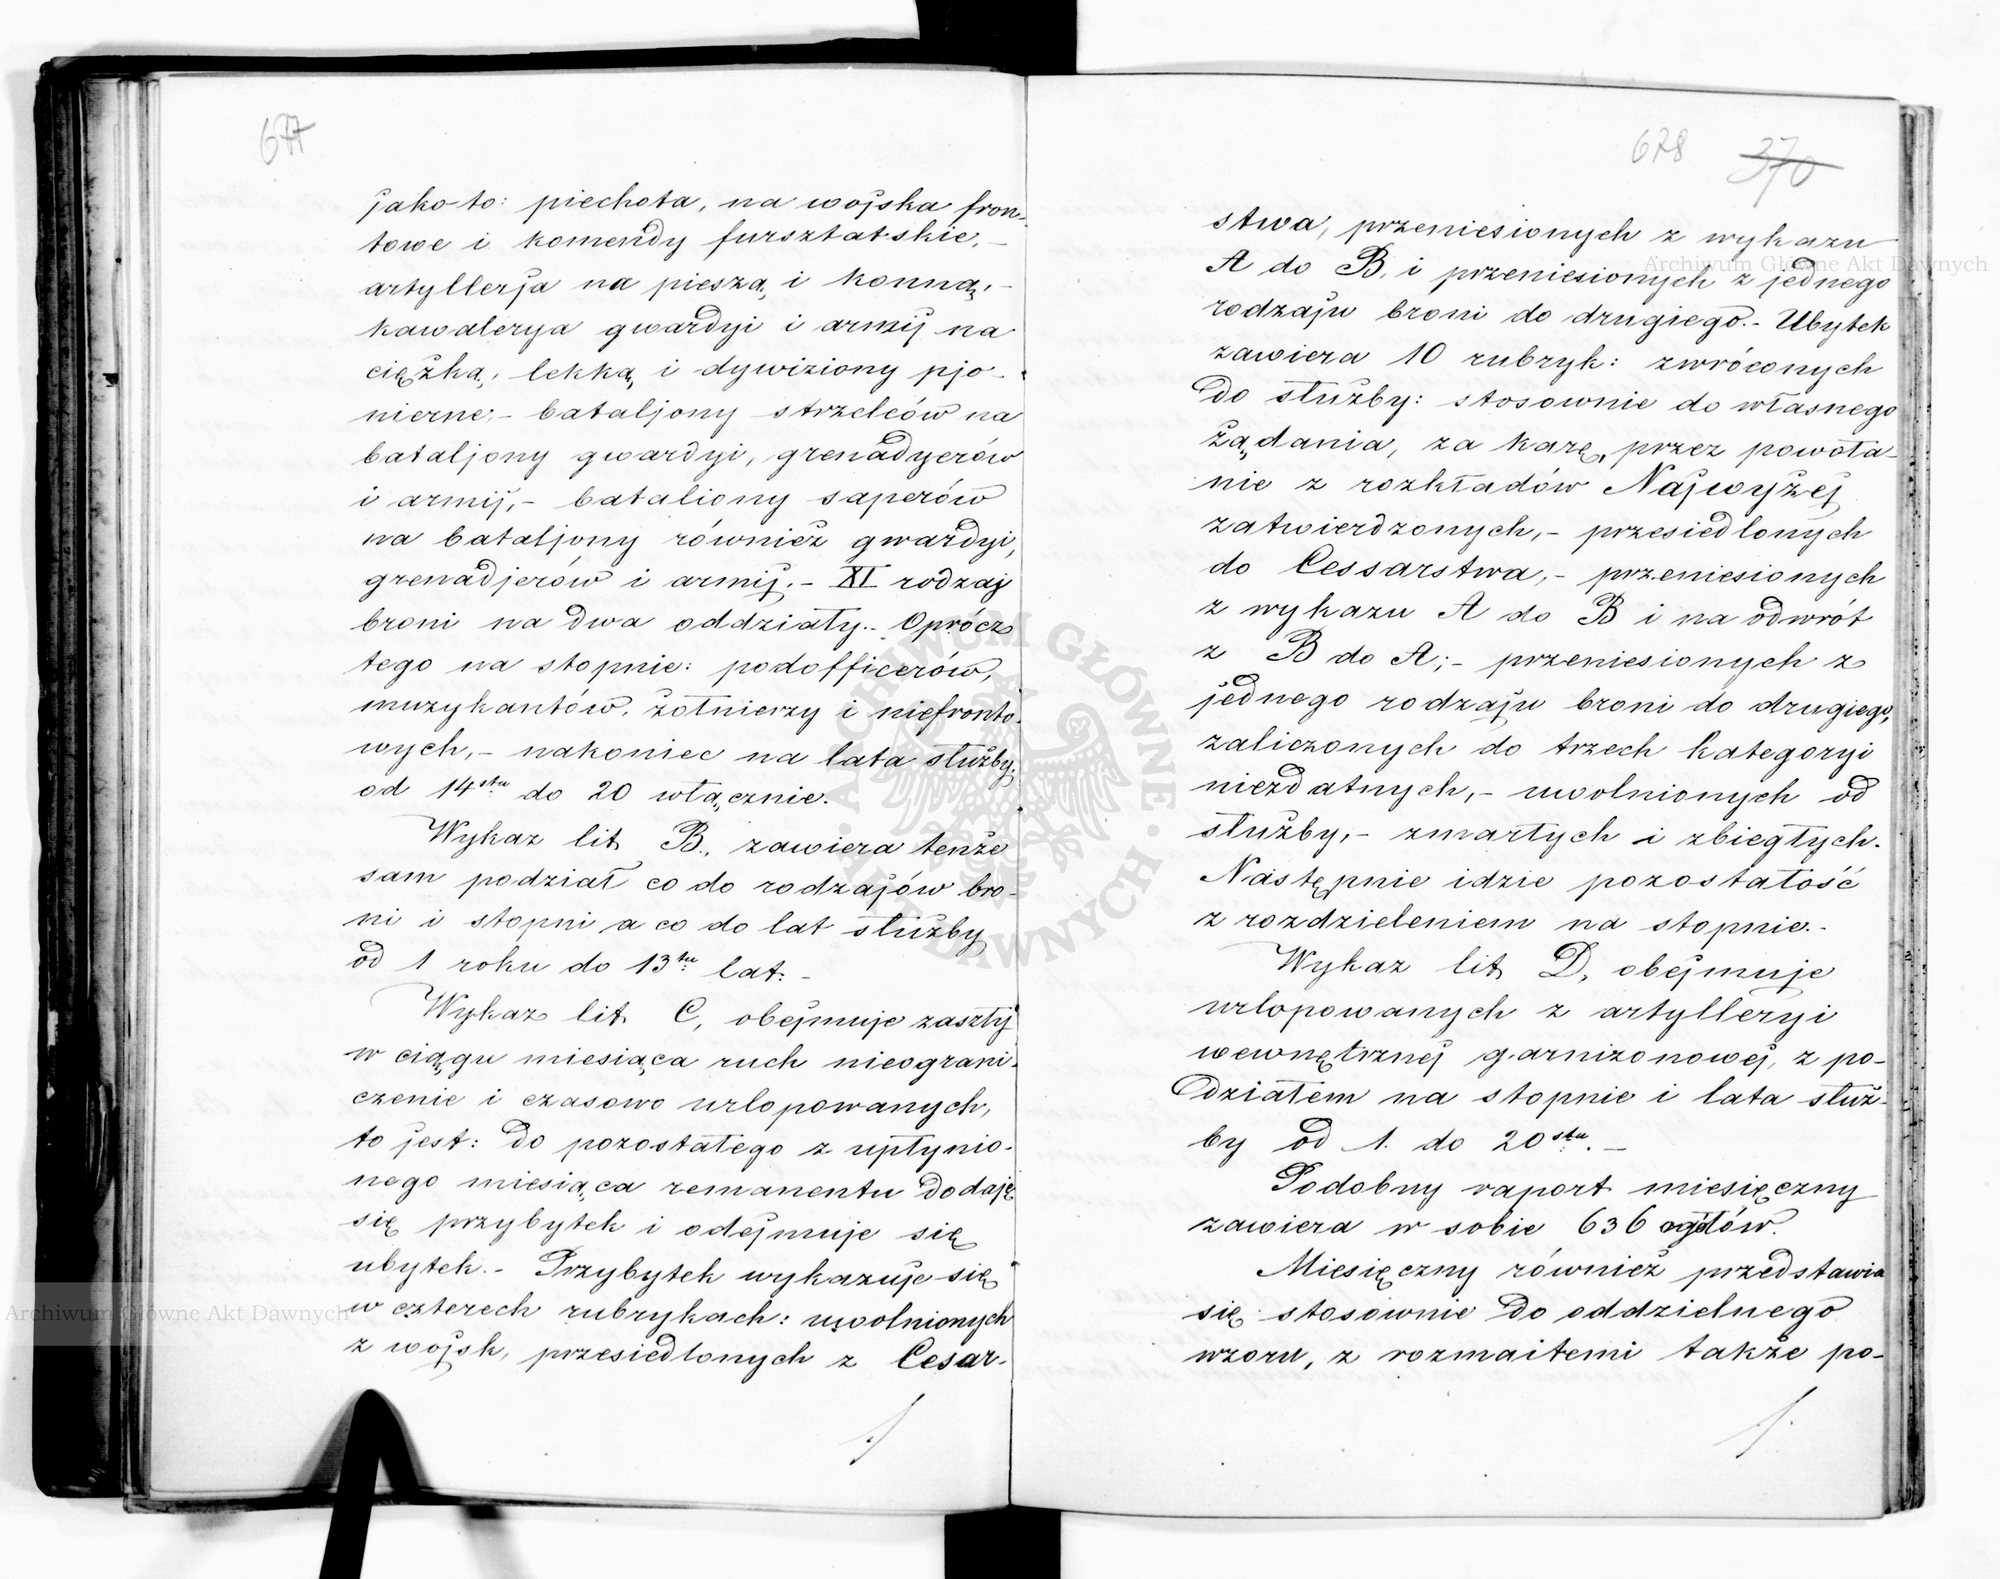 677
jako to: piechota, na wojska fron-
towe i komendy fursztatskie, –
artyllerja na pieszą i konną, –
kawalerya gwardyi i armij na
ciężką, lekką i dywiziony pjo-
nierne, – bataljony strzelców na
bataljony gwardyi, grenadyerów
i armij, – bataliony saperów
na bataljony również gwardyi,
grenadjerów i armij. – XI rodzaj
broni na dwa oddziały. – Oprócz
tego na stopnie: podofficerów,
muzykantów, żołnierzy i niefronto-
wych, – nakoniec na lata służby;
od 14stu do 20 włącznie.
Wykaz lit B., zawiera tenże
sam podział co do rodzajów bro-
ni i stopni a co do lat służby
od 1 roku do 13tu lat. –
Wykaz lit C, obejmuje zaszły
w ciągu miesiąca ruch nieograni-
czenie i czasowo urlopowanych,
to jest: do pozostałego z upłynio-
nego miesiąca remanentu dodaje
się przybytek i odejmuje się
ubytek. – Przybytek wykazuje się
w czterech rubrykach: uwolnionych
z wojsk, przesiedlonych z Cesar-
678 370
stwa, przeniesionych z wykazu
A do B, i przeniesionych z jednego
rodzaju broni do drugiego. – Ubytek
zawiera 10 rubryk: zwróconych
do służby: stosownie do własnego
żądania, za karę, przez powoła-
nie z rozkładów Najwyżej
zatwierdzonych, – przesiedlonych
do Cessarstwa, – przeniesionych
z wykazu A do B i na odwrót
z B do A; – przeniesionych z
jednego rodzaju broni do drugiego,
zaliczonych do trzech kategoryi
niezdatnych, – uwolnionych od
służby, – zmarłych i zbiegłych.
Następnie idzie pozostałość
z rozdzieleniem na stopnie. –
Wykaz lit D, obejmuje
urlopowanych z artylleryi
wewnętrznej garnizonowej, z po-
działem na stopnie i lata służ-
by od 1. do 20stu. –
Podobny raport miesięczny
zawiera w sobie 636
Miesięczny również przedstawia
się stosownie do oddzielnego
wzoru, z rozmaitemi także po-
Archiwum Główne Akt Dawnych
Archiwum Główne Akt Dawnych
ARCHIWUM GŁÓWNE AKT DAWNYCH